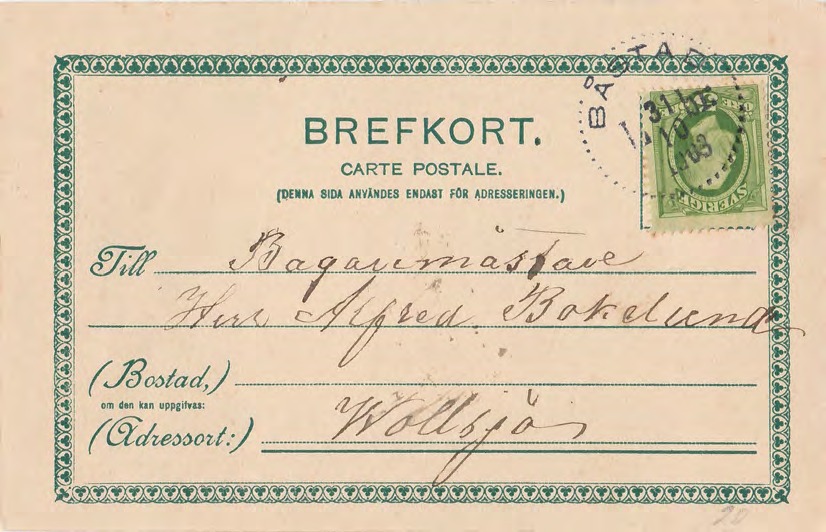 BÅSTAD
31 1
10
1903
SVERIGE
BREFKORT.
CARTE POSTALE.
(DENNA SIDA ANVÄNDES ENDAST FÖR ADRESSERINGEN.)
Till Bagaremästare
Herr Alfred Bokelund
(Bostad,)
om den kan uppgifvas:
(Adressort:) Wollsjö